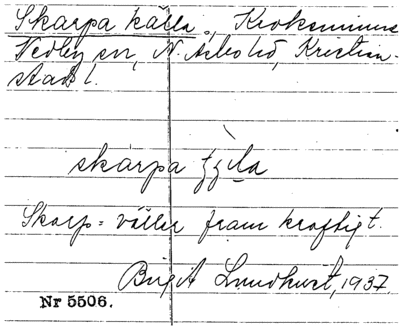 Skarpa källa, Kroksminne
Vedby sn, N. Åsbo hd, Kristian-
stads l.
skarpa
Skarp = väller fram kraftigt.
Birgit Lundkvist, 1937.
Nr 5506.